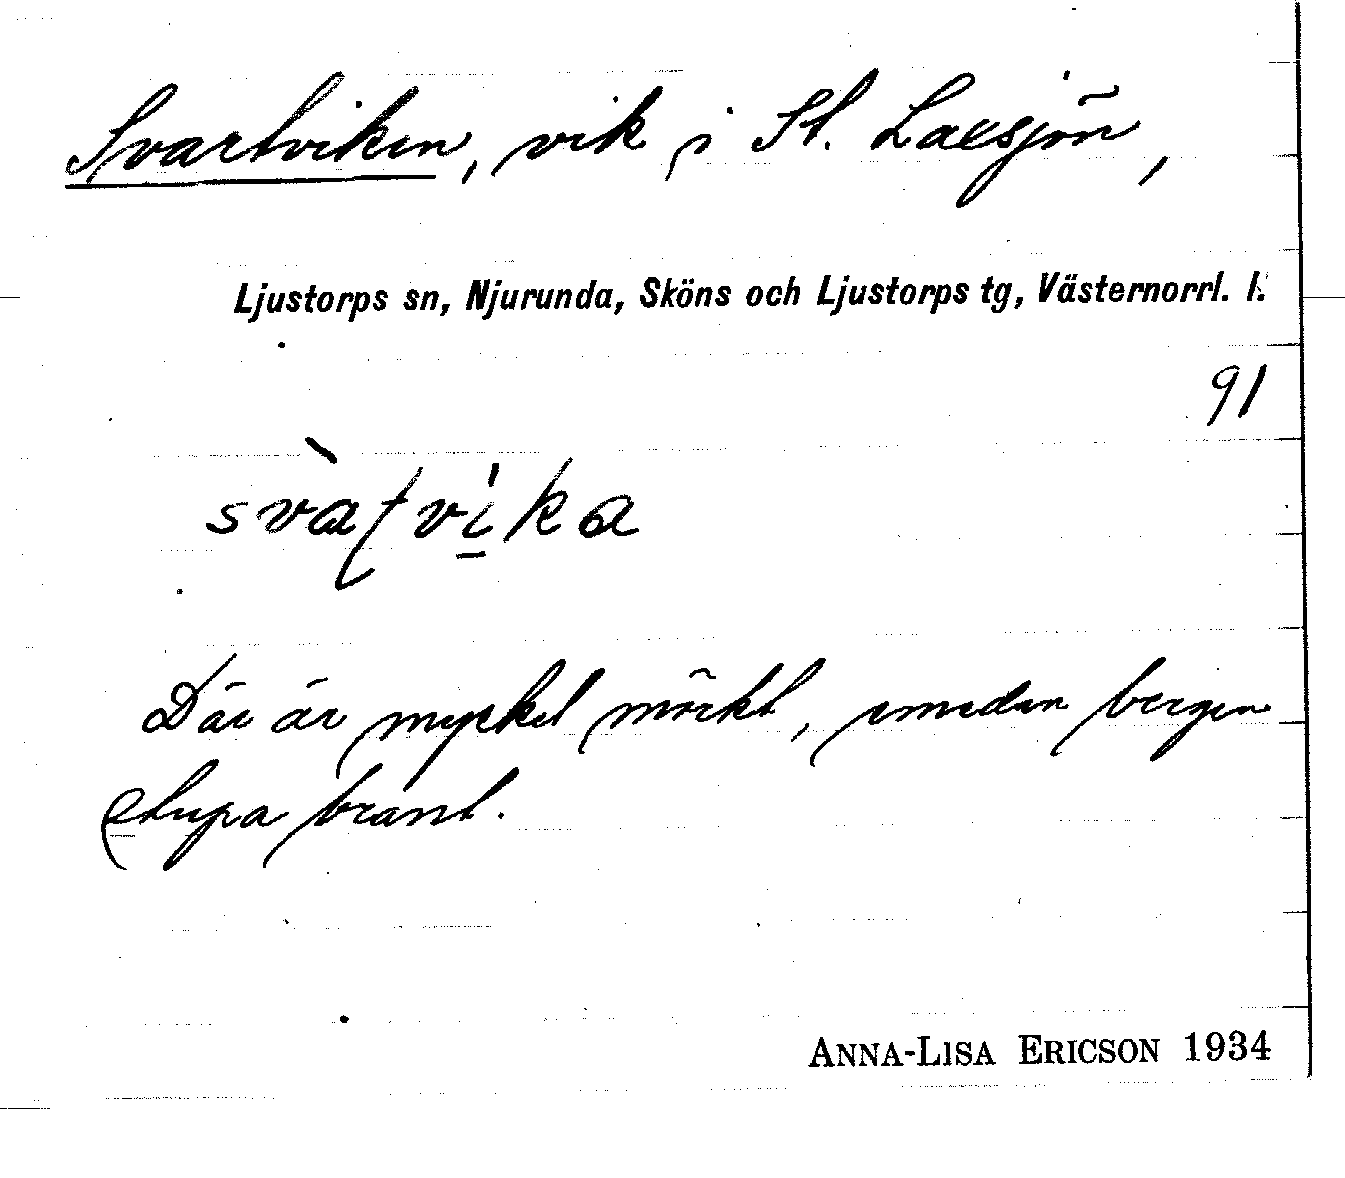 Svartviken, vik i St. Laxsjön,
Ljustorps sn, Njurunda, Sköns och Ljustorps tg, Västernorrl. l.
91
svàtvi̲ka
Där är mycket mörkt, emedan bergen
stupa brant.
ANNA-LISA ERICSON 1934